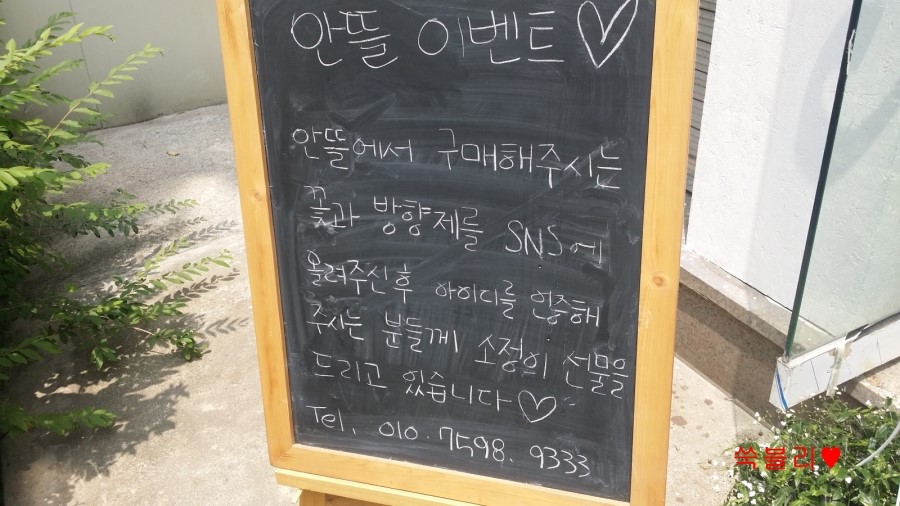 안뜰 이벤트♡
안뜰에서 구매해주시는
꽃과 방향제를 SNS에
올려주신후 아이디를 인증해
주시는 분들께 소정의 선물을
드리고 있습니다♡
Tel. 010.7598.9333
쑥볼리♥